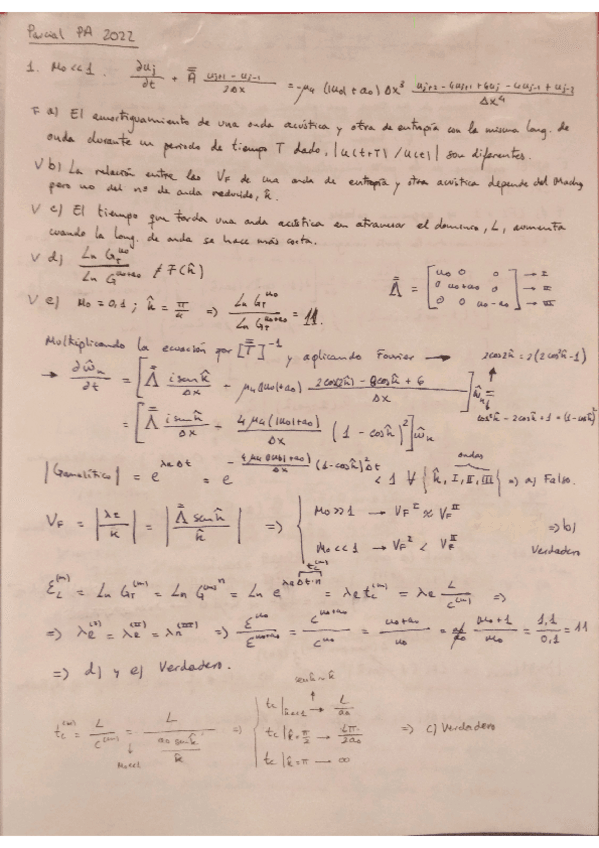 Parcial PA 2022
1. Mo<<1. ∂uj/∂t + Ā (uj+1 - uj-1)/2Δx = -μ4 (|uo|+ao) Δx³ (uj+2 - 4uj+1 + 6uj - 4uj-1 + uj-2)/Δx⁴
F a) El amortiguamiento de una onda acústica y otra de entropía con la misma long. de
onda durante un periodo de tiempo T dado, |u(t+T)/u(t)| son diferentes.
V b) La relación entre las VF de una onda de entropía y otra acústica depende del Mach,
pero no del nº de onda reducido, k̂.
V c) El tiempo que tarda una onda acústica en atravesar el dominio, L, aumenta
cuando la long. de onda se hace más corta.
V d) Ln GT^uo / Ln G^uo+ao ≠ F(k̂)
Λ̄ = [uo 0 0 → I
0 uo+ao 0 → II
0 0 uo-ao] → III
V e) Mo = 0,1 ; k̂ = π/4 ⇒ Ln GT^uo / Ln GT^uo+ao = 11.
Multiplicando la ecuación por [T̄]⁻¹ y aplicando Fourier →
2cos2k̂ = 2(2cos²k̂ - 1)
→ ∂ŵn/∂t = [Λ̄ i sen k̂/Δx - μ4(|uo|+ao) (2cos(2k̂) - 8cosk̂ + 6)/Δx] ŵn =
cos²k̂ - 2cosk̂ + 1 = (1-cosk̂)²
= [Λ̄ i sen k̂/Δx - 4μ4(|uo|+ao)/Δx (1 - cosk̂)²] ŵn
|Ganalítico| = e^(λR Δt) = e^(-4μ4(|uo|+ao)/Δx (1-cosk̂)² Δt) < 1 ∀ {k̂, I, II, III} ⇒ a) Falso.
ondas
VF = |λI/k̂| = |Λ̄ sen k̂/k̂| ⇒ { Mo>>1 → VF^I ≈ VF^II
Mo<<1 → VF^I < VF^II
⇒ b)
Verdadero
εL^(m) = Ln GT^(m) = Ln G^(m)n = Ln e^(λR Δt·n) = λR tc^(m) = λR L/c^(m) ⇒
⇒ λR^(I) = λR^(II) = λR^(III) ⇒ ε^uo/ε^uo+ao = c^uo+ao/c^uo = (uo+ao)/uo = (Mo+1)/Mo = 1,1/0,1 = 11
⇒ d) y e) Verdadero.
sen k̂ ≈ k̂
tc^(m) = L/c^(m) = L/(ao sen k̂/k̂) ⇒ { tc|k̂<<1 → L/ao
Mo<<1
tc|k̂=π/2 → Lπ/2ao
tc|k̂=π → ∞
⇒ c) Verdadero